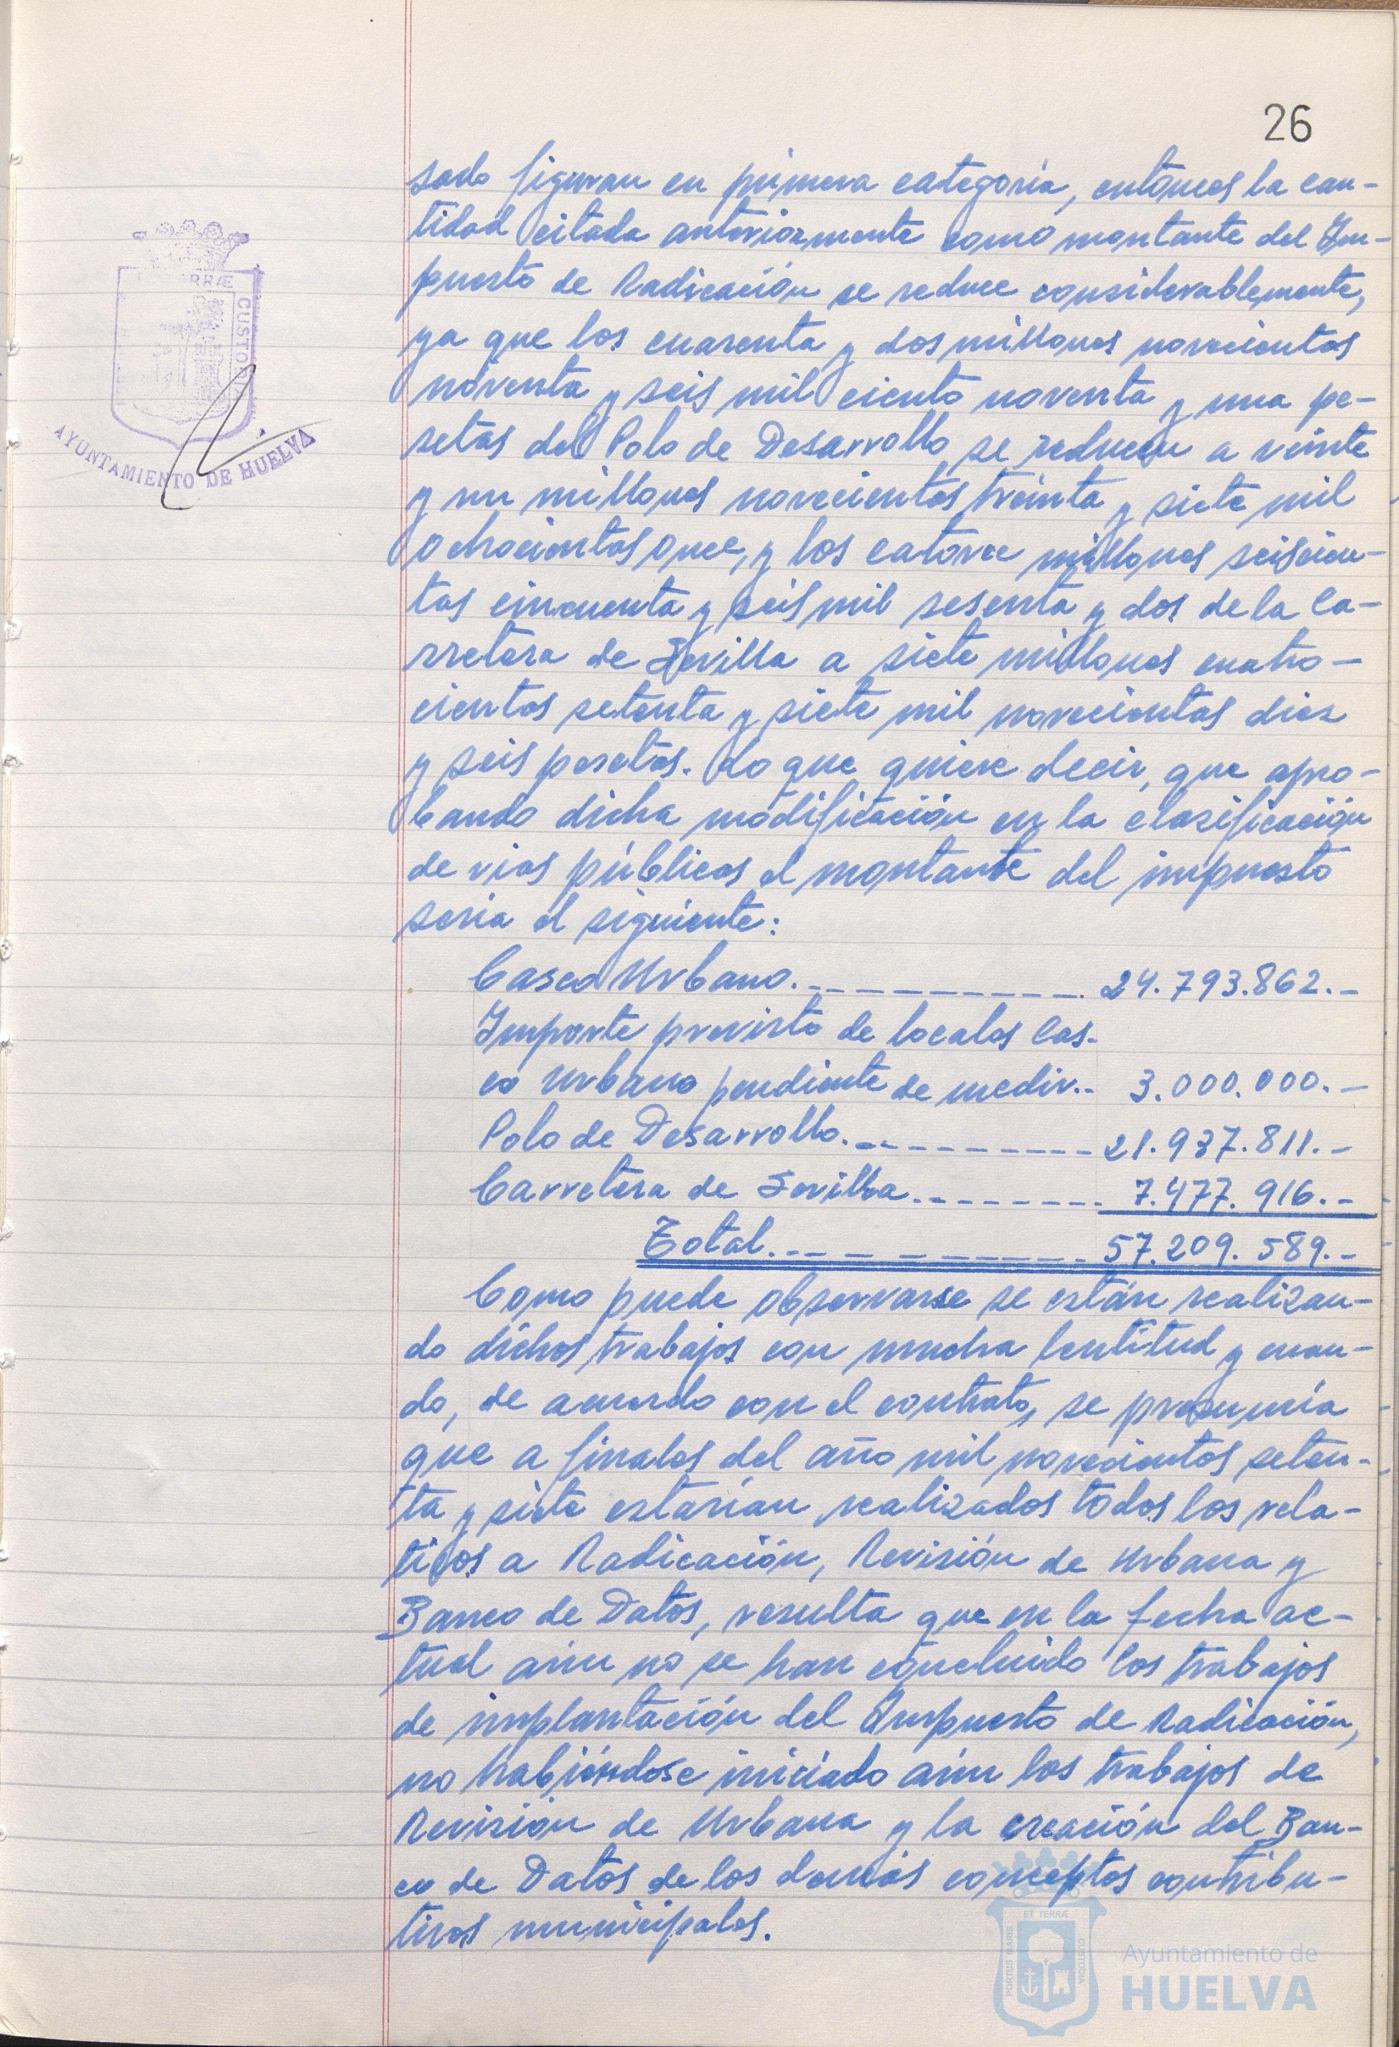 26
sado figuran en primera categoría, entonces la can-
tidad citada anteriormente como montante del Im-
puesto de Radicación se reduce considerablemente,
ya que los cuarenta y dos millones novecientos
noventa y seis mil ciento noventa y una pe-
setas del Polo de Desarrollo se reducen a veinte
y un millones novecientos treinta y siete mil
ochocientos once, y los catorce millones seiscien-
tas cincuenta y seis mil sesenta y dos de la Ca-
rretera de Sevilla a siete millones cuatro-
cientos setenta y siete mil novecientas diez
y seis pesetas. Lo que quiere decir, que apro-
bando dicha modificación en la clasificación
de vias públicas el montante del impuesto
seria el siguiente:
Casco Urbano. 24.793.862.-
Importe previsto de locales Cas-
co Urbano pendiente de medir.. 3.000.000.-
Polo de Desarrollo. 21.937.811.-
Carretera de Sevilla. 7.477.916.-
Total. 57.209.589.-
Como puede observarse se están realizan-
do dichos trabajos con mucha lentitud y cuan-
do, de acuerdo con el contrato, se presumía
que a finales del año mil novecientos seten-
ta y siete estarían realizados todos los rela-
tivos a Radicación, Revisión de Urbana y
Banco de Datos, resulta que en la fecha ac-
tual aún no se han concluido los trabajos
de implantación del Impuesto de Radicación,
no habiéndose iniciado aún los trabajos de
Revisión de Urbana y la creación del Ban-
co de Datos de los demás conceptos contribu-
tivos municipales.
RRÆ
CUSTOD
AYUNTAMIENTO DE HUELVA
PORTUS MARIS
ET TERRÆ
CUSTODIA
Ayuntamiento de
HUELVA